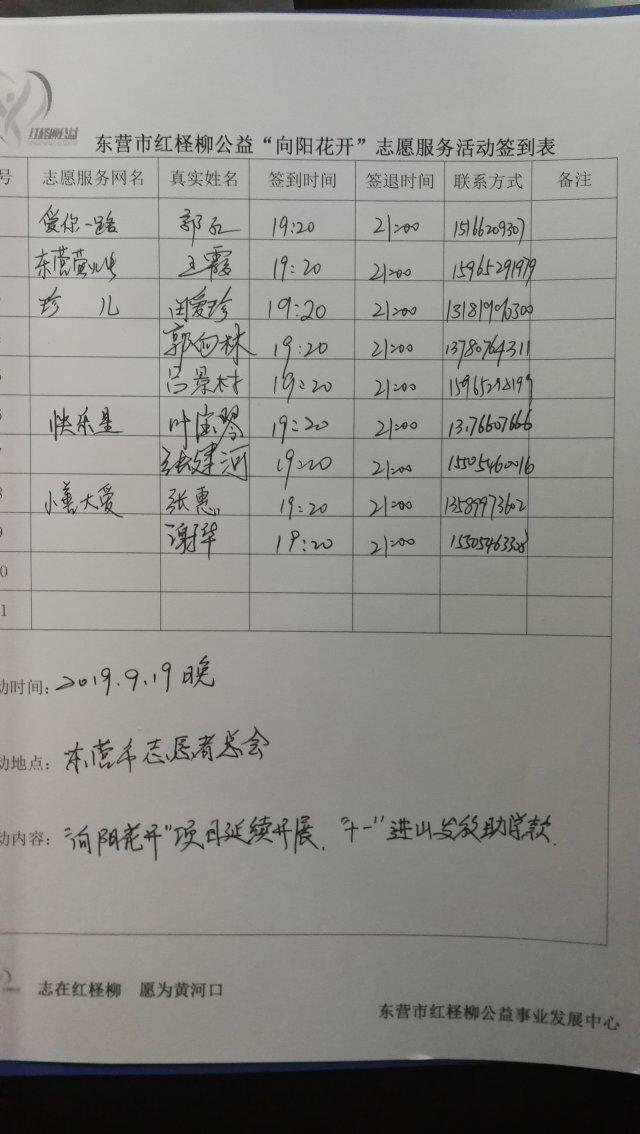 红柽柳公益
东营市红柽柳公益“向阳花开”志愿服务活动签到表
号 志愿服务网名 真实姓名 签到时间 签退时间 联系方式 备注
爱你一路 郭红 19:20 21:00 15166209307
东营营业生 王霞 19:20 21:00 15965291979
珍儿 闫爱珍 19:20 21:00 13181909300
郭向林 19:20 21:00 13780764311
5 吕景村 19:20 21:00 15965298199
6 快乐星 叶宝琴 19:20 21:00 13176607666
7 张建河 19:20 21:00 15505460016
8 小善大爱 张惠 19:20 21:00 13589973602
9 谢华 19:20 21:00 15505463308
0
1
动时间：2019.9.19晚
动地点：东营市志愿者总会
动内容：“向阳花开”项目延续开展，“十一”进山发放助学款.
志在红柽柳 愿为黄河口
东营市红柽柳公益事业发展中心